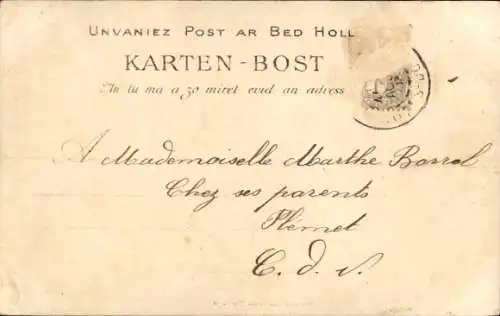 UNVANIEZ POST AR BED HOLL
KARTEN-BOST
An tu ma a zo miret evid an adress
A Mademoiselle Marthe Borrel
Chez ses parents
Plémet
C. d. N.